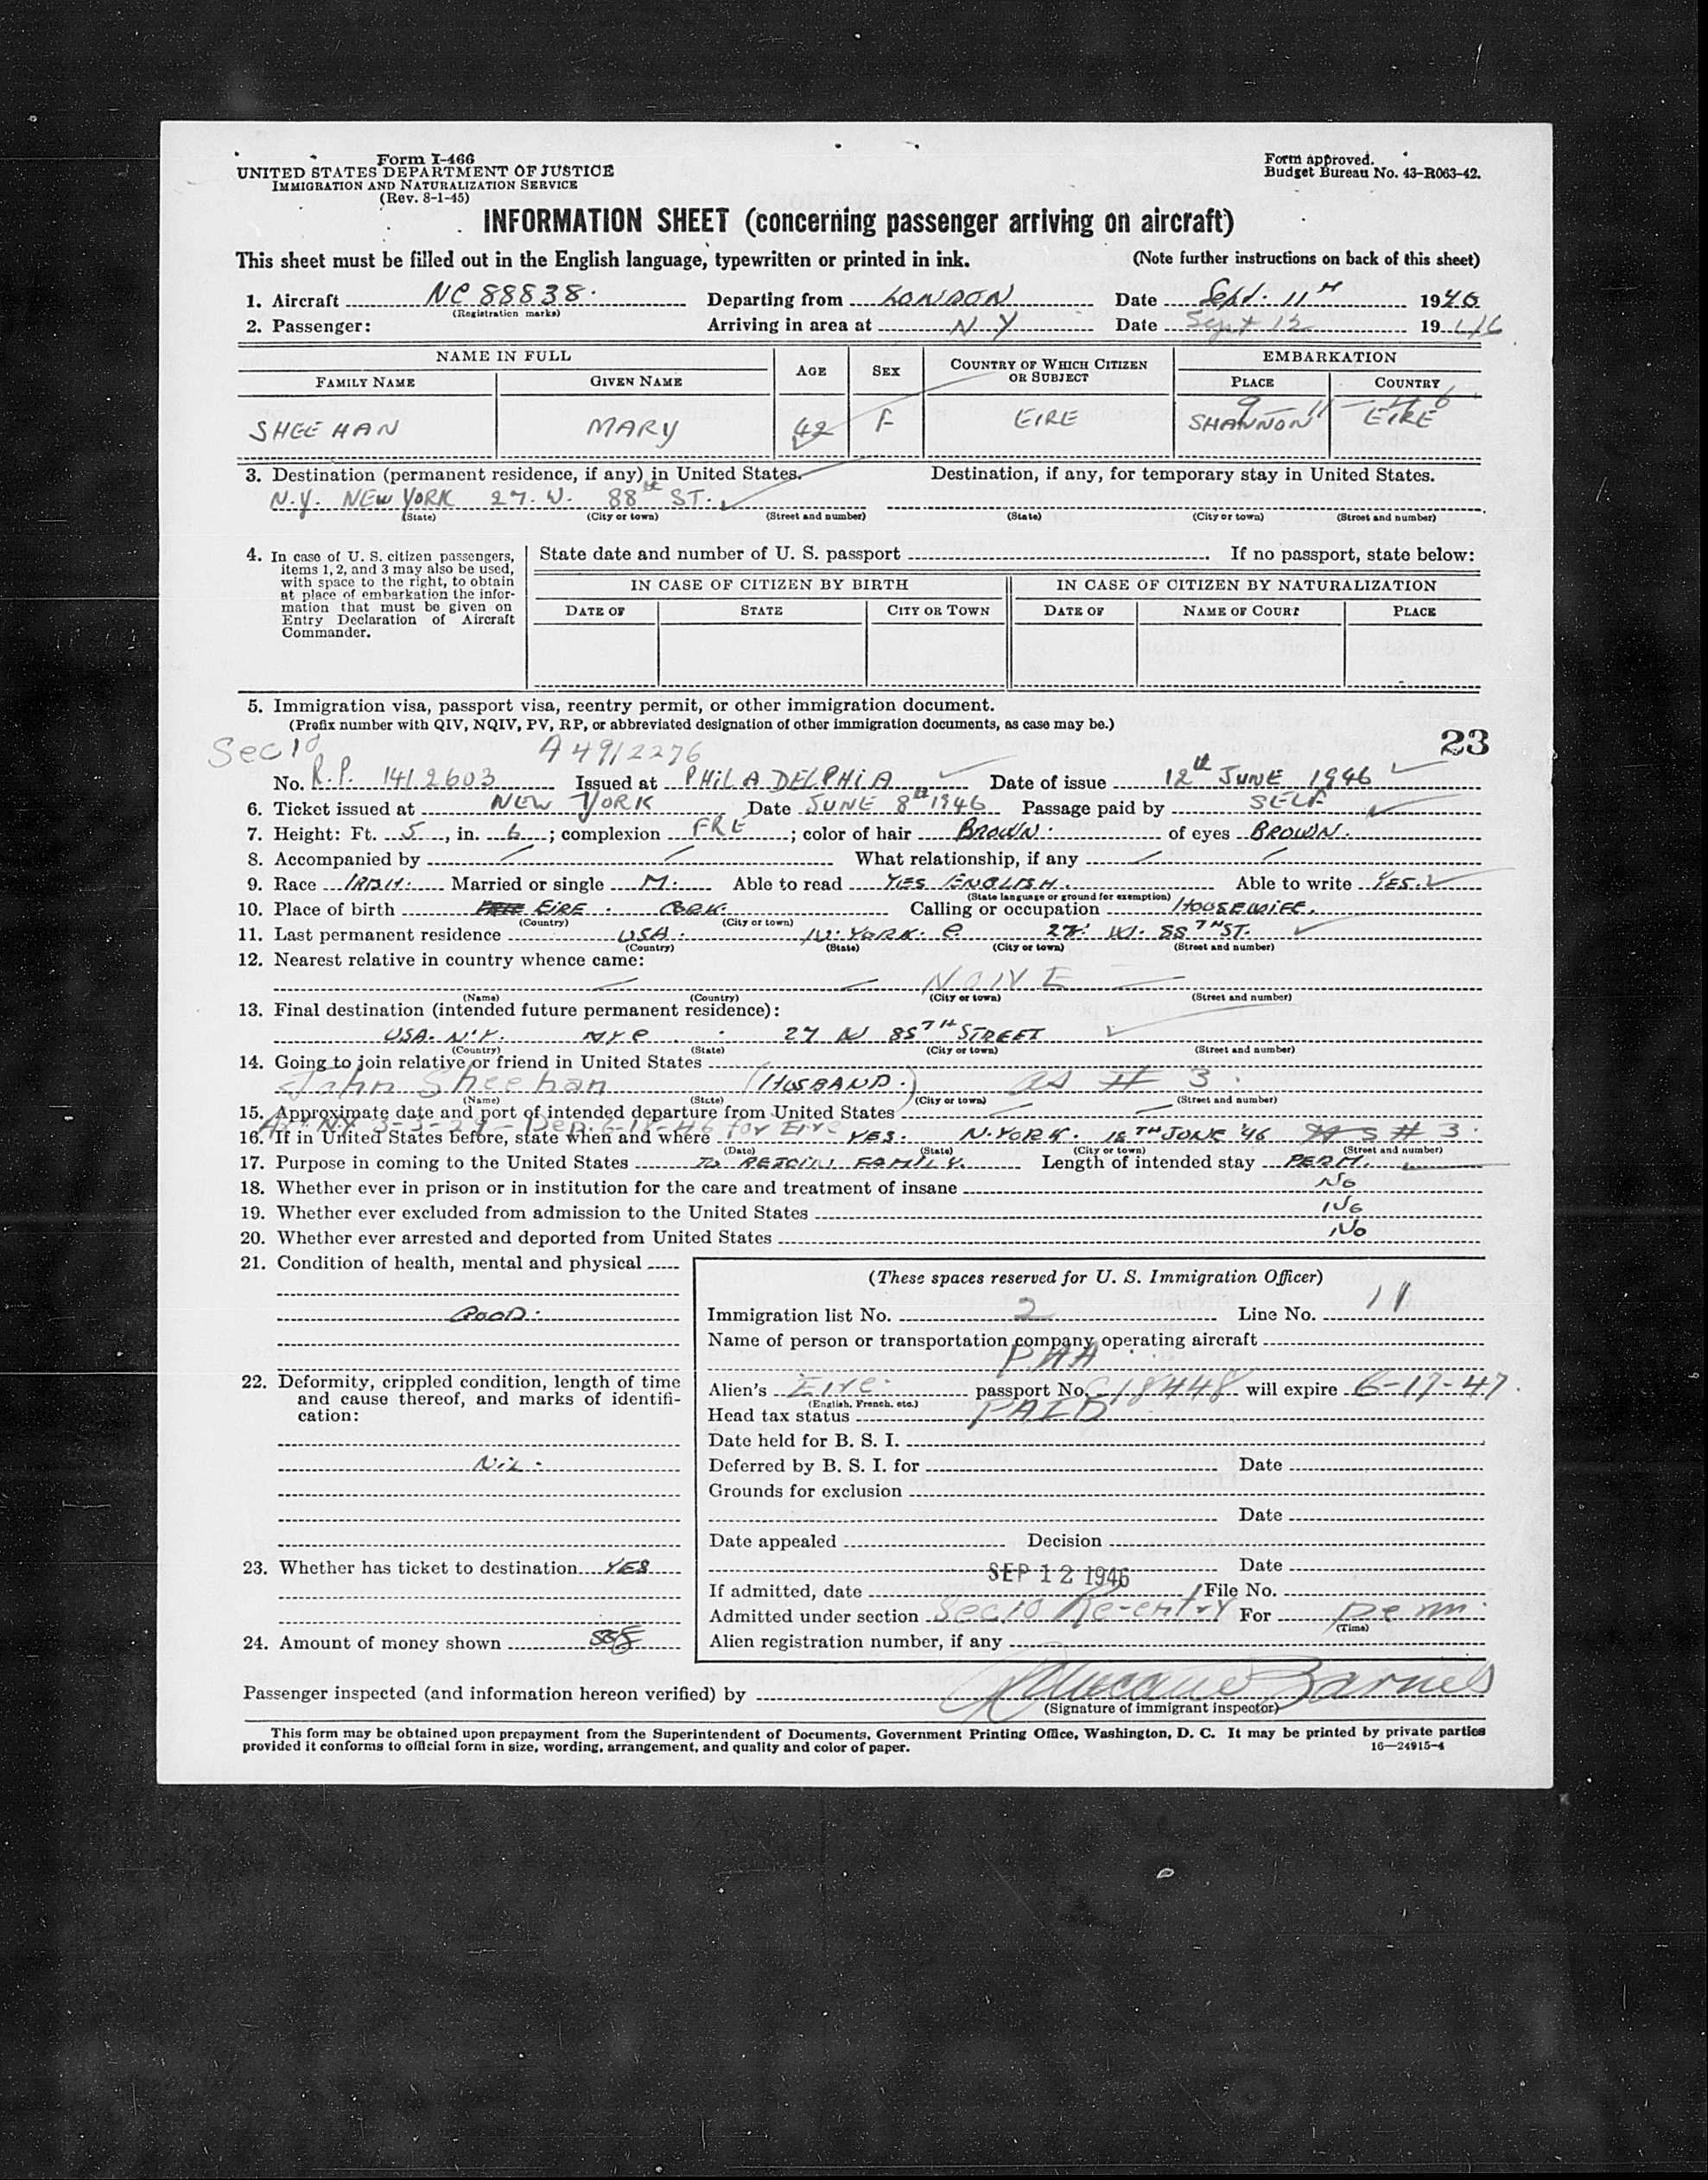 Form I-466
UNITED STATES DEPARTMENT OF JUSTICE
IMMIGRATION AND NATURALIZATION SERVICE
(Rev. 8-1-45)
Form approved.
Budget Bureau No. 43-R063-42.
INFORMATION SHEET (concerning passenger arriving on aircraft)
This sheet must be filled out in the English language, typewritten or printed in ink. (Note further instructions on back of this sheet)
1. Aircraft NC 88838. Departing from LONDON Date Sept. 11th 1946
(Registration marks)
2. Passenger: Arriving in area at N.Y Date Sept 12 1946
NAME IN FULL AGE SEX COUNTRY OF WHICH CITIZEN OR SUBJECT EMBARKATION
FAMILY NAME GIVEN NAME PLACE COUNTRY
9-11-46
SHEEHAN MARY 42 F EIRE SHANNON EIRE
3. Destination (permanent residence, if any) in United States. Destination, if any, for temporary stay in United States.
N.Y. NEW YORK 27. W. 88th ST.
(State) (City or town) (Street and number) (State) (City or town) (Street and number)
4. In case of U. S. citizen passengers, items 1, 2, and 3 may also be used, with space to the right, to obtain at place of embarkation the information that must be given on Entry Declaration of Aircraft Commander.
State date and number of U. S. passport If no passport, state below:
IN CASE OF CITIZEN BY BIRTH IN CASE OF CITIZEN BY NATURALIZATION
DATE OF STATE CITY OR TOWN DATE OF NAME OF COURT PLACE
5. Immigration visa, passport visa, reentry permit, or other immigration document.
(Prefix number with QIV, NQIV, PV, RP, or abbreviated designation of other immigration documents, as case may be.)
23
Sec 10 A 4912276
No. R.P. 1412603 Issued at PHILADELPHIA Date of issue 12th JUNE 1946
6. Ticket issued at NEW YORK Date JUNE 8th 1946 Passage paid by SELF
7. Height: Ft. 5, in. 6; complexion FRE; color of hair BROWN. of eyes BROWN.
8. Accompanied by What relationship, if any
9. Race IRISH. Married or single M. Able to read YES ENGLISH. Able to write YES.
(State language or ground for exemption)
10. Place of birth EIRE. CORK. Calling or occupation HOUSEWIFE.
(Country) (City or town)
11. Last permanent residence USA. N. YORK. C 27. W. 88TH ST.
(Country) (State) (City or town) (Street and number)
12. Nearest relative in country whence came:
NONE
(Name) (Country) (City or town) (Street and number)
13. Final destination (intended future permanent residence):
USA. N.Y. NYC 27 W 88TH STREET
(Country) (State) (City or town) (Street and number)
14. Going to join relative or friend in United States
John Sheehan (HUSBAND.) as # 3.
(Name) (State) (City or town) (Street and number)
15. Approximate date and port of intended departure from United States
Arr. N.Y. 3-3-29 - Dep. 6-18-46 for Eire
16. If in United States before, state when and where YES. N.YORK. 18TH JUNE '46 As # 3.
(Date) (State) (City or town) (Street and number)
17. Purpose in coming to the United States TO REJOIN FAMILY. Length of intended stay PERM.
18. Whether ever in prison or in institution for the care and treatment of insane No
19. Whether ever excluded from admission to the United States No
20. Whether ever arrested and deported from United States No
21. Condition of health, mental and physical
GOOD.
22. Deformity, crippled condition, length of time and cause thereof, and marks of identification:
NIL.
23. Whether has ticket to destination YES
24. Amount of money shown
(These spaces reserved for U. S. Immigration Officer)
Immigration list No. 2 Line No. 11
Name of person or transportation company operating aircraft
PAA
Alien's Eire passport No. C18448 will expire 6-17-47.
(English, French, etc.)
Head tax status PAID
Date held for B. S. I.
Deferred by B. S. I. for Date
Grounds for exclusion
Date
Date appealed Decision
Date
SEP 12 1946
If admitted, date File No.
Admitted under section Sec 10 Re-entry For perm.
(Time)
Alien registration number, if any
Passenger inspected (and information hereon verified) by Barnes
(Signature of immigrant inspector)
This form may be obtained upon prepayment from the Superintendent of Documents, Government Printing Office, Washington, D. C. It may be printed by private parties
provided it conforms to official form in size, wording, arrangement, and quality and color of paper. 16—24915-4